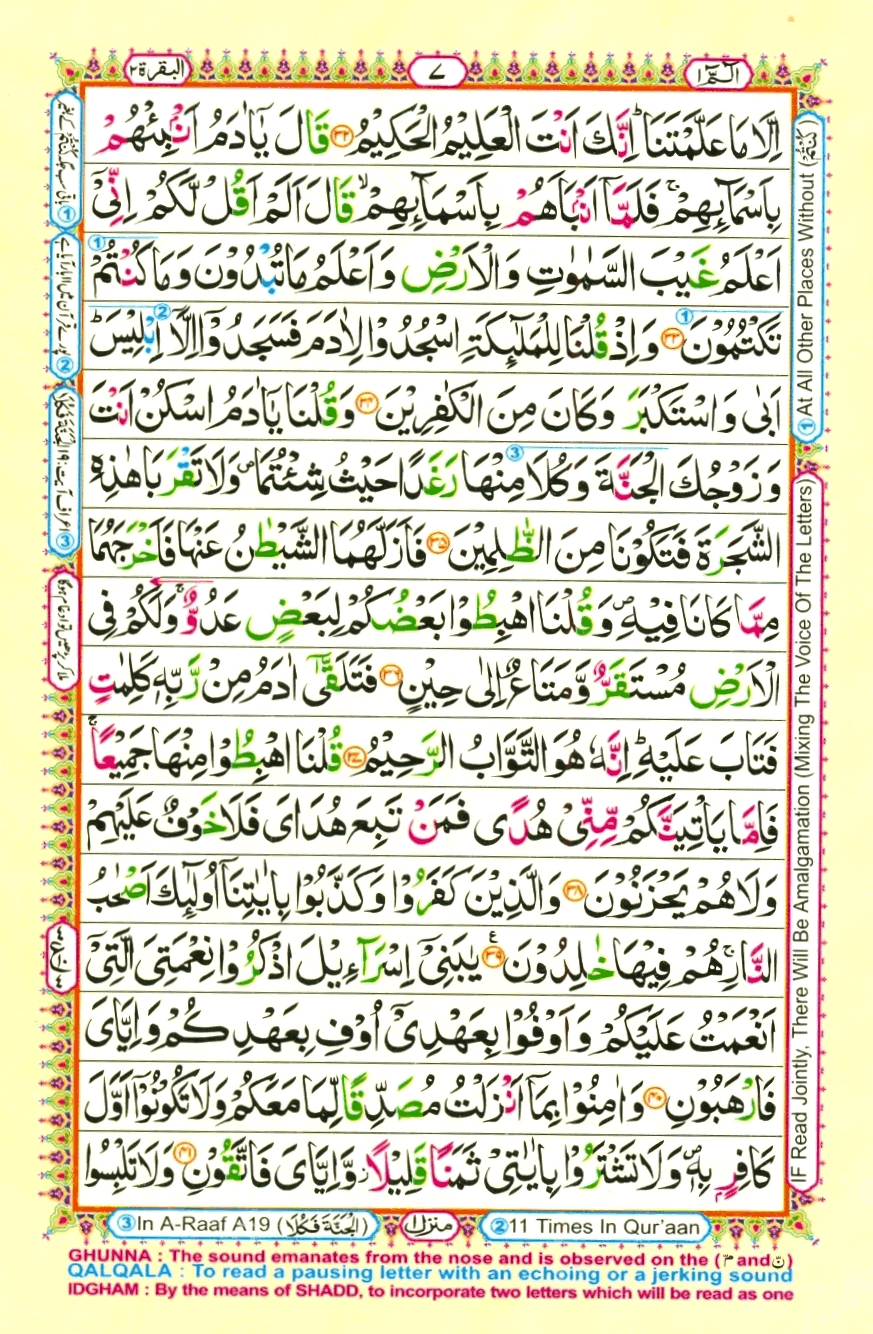 الٓمّٓ ١
٧
البقرة ٢
اِلَّا مَا عَلَّمْتَنَا ؕ اِنَّكَ اَنْتَ الْعَلِيْمُ الْحَكِيْمُ ﴿۳۲﴾ قَالَ يٰۤاٰدَمُ اَنْۢبِئْهُمْ
بِاَسْمَآئِهِمْ ۚ فَلَمَّاۤ اَنْۢبَاَهُمْ بِاَسْمَآئِهِمْ ۙ قَالَ اَلَمْ اَقُلْ لَّكُمْ اِنِّىْۤ
اَعْلَمُ غَيْبَ السَّمٰوٰتِ وَالْاَرْضِ وَاَعْلَمُ مَا تُبْدُوْنَ وَمَا كُنْتُمْ
تَكْتُمُوْنَ ﴿۳۳﴾ وَاِذْ قُلْنَا لِلْمَلٰٓئِكَةِ اسْجُدُوْا لِاٰدَمَ فَسَجَدُوْۤا اِلَّاۤ اِبْلِيْسَ ؕ
اَبٰى وَاسْتَكْبَرَ وَكَانَ مِنَ الْكٰفِرِيْنَ ﴿۳۴﴾ وَقُلْنَا يٰۤاٰدَمُ اسْكُنْ اَنْتَ
وَزَوْجُكَ الْجَنَّةَ وَكُلَا مِنْهَا رَغَدًا حَيْثُ شِئْتُمَا ۪ وَلَا تَقْرَبَا هٰذِهِ
الشَّجَرَةَ فَتَكُوْنَا مِنَ الظّٰلِمِيْنَ ﴿۳۵﴾ فَاَزَلَّهُمَا الشَّيْطٰنُ عَنْهَا فَاَخْرَجَهُمَا
مِمَّا كَانَا فِيْهِ ۪ وَقُلْنَا اهْبِطُوْا بَعْضُكُمْ لِبَعْضٍ عَدُوٌّ ۚ وَلَكُمْ فِى
الْاَرْضِ مُسْتَقَرٌّ وَّمَتَاعٌ اِلٰى حِيْنٍ ﴿۳۶﴾ فَتَلَقّٰۤى اٰدَمُ مِنْ رَّبِّهٖ كَلِمٰتٍ
فَتَابَ عَلَيْهِ ؕ اِنَّهٗ هُوَ التَّوَّابُ الرَّحِيْمُ ﴿۳۷﴾ قُلْنَا اهْبِطُوْا مِنْهَا جَمِيْعًا ۚ
فَاِمَّا يَاْتِيَنَّكُمْ مِّنِّىْ هُدًى فَمَنْ تَبِعَ هُدَاىَ فَلَا خَوْفٌ عَلَيْهِمْ
وَلَا هُمْ يَحْزَنُوْنَ ﴿۳۸﴾ وَالَّذِيْنَ كَفَرُوْا وَكَذَّبُوْا بِاٰيٰتِنَاۤ اُولٰٓئِكَ اَصْحٰبُ
النَّارِ ۚ هُمْ فِيْهَا خٰلِدُوْنَ ﴿۳۹﴾ يٰبَنِىْۤ اِسْرَآءِيْلَ اذْكُرُوْا نِعْمَتِىَ الَّتِىْۤ
اَنْعَمْتُ عَلَيْكُمْ وَاَوْفُوْا بِعَهْدِىْۤ اُوْفِ بِعَهْدِكُمْ وَاِيَّاىَ
فَارْهَبُوْنِ ﴿۴۰﴾ وَاٰمِنُوْا بِمَاۤ اَنْزَلْتُ مُصَدِّقًا لِّمَا مَعَكُمْ وَلَا تَكُوْنُوْۤا اَوَّلَ
كَافِرٍۭ بِهٖ ۪ وَلَا تَشْتَرُوْا بِاٰيٰتِىْ ثَمَنًا قَلِيْلًا ؗ وَّاِيَّاىَ فَاتَّقُوْنِ ﴿۴۱﴾ وَلَا تَلْبِسُوا
① At All Other Places Without (كُنْتُمْ)
IF Read Jointly, There Will Be Amalgamation (Mixing The Voice Of The Letters)
② 11 Times In Qur'aan
منزل ١
③ In A-Raaf A19 (الْجَنَّةَ فَكُلَا)
GHUNNA : The sound emanates from the nose and is observed on the (مّ and نّ)
QALQALA : To read a pausing letter with an echoing or a jerking sound
IDGHAM : By the means of SHADD, to incorporate two letters which will be read as one